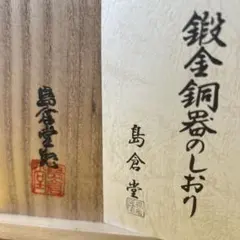 鍛金銅器のしおり
島倉堂
島倉堂